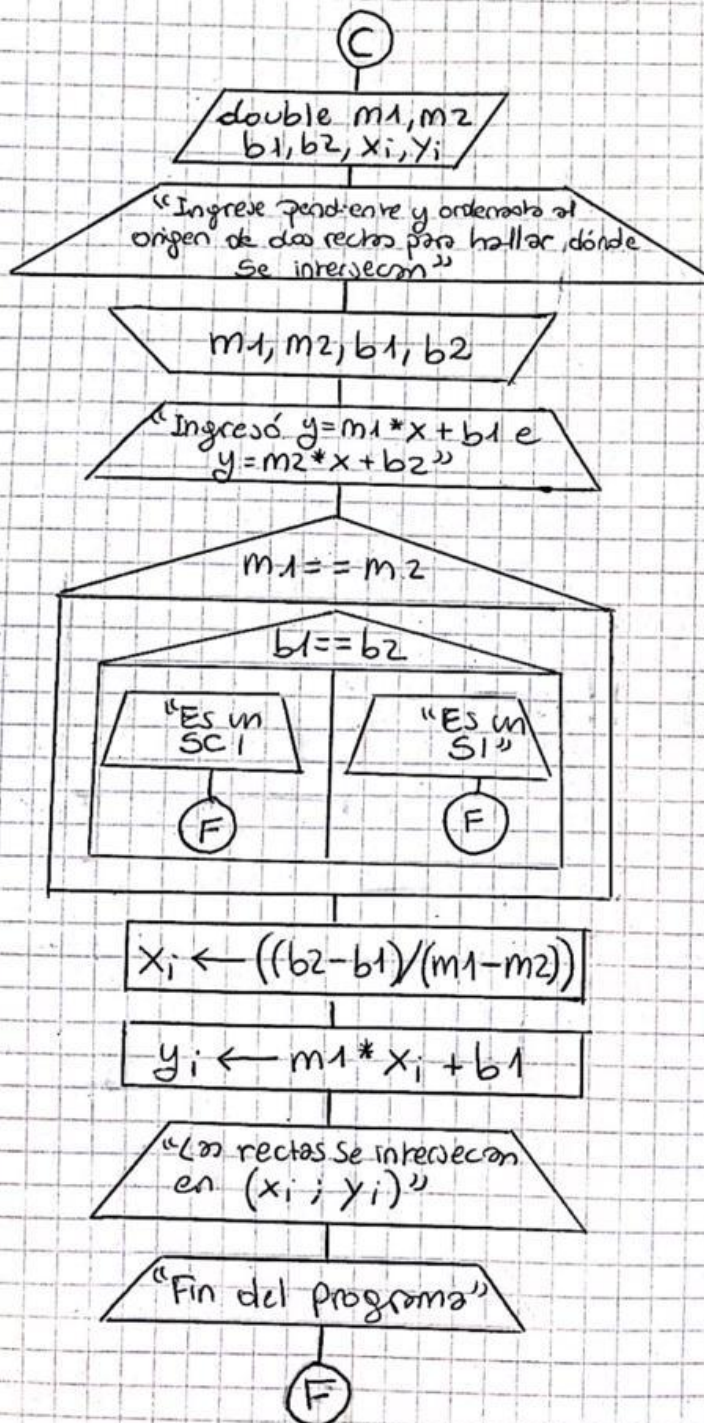 C
double m1, m2
b1, b2, xi, yi
"Ingrese pendiente y ordenada al
origen de dos rectas para hallar dónde
se intersecan"
m1, m2, b1, b2
"Ingresó y=m1*x+b1 e
y=m2*x+b2"
m1==m2
b1==b2
"Es un
SCI
F
"Es un
SI"
F
xi ← ((b2-b1)/(m1-m2))
yi ← m1*xi+b1
"Las rectas se intersecan
en (xi ; yi)"
"Fin del programa"
F